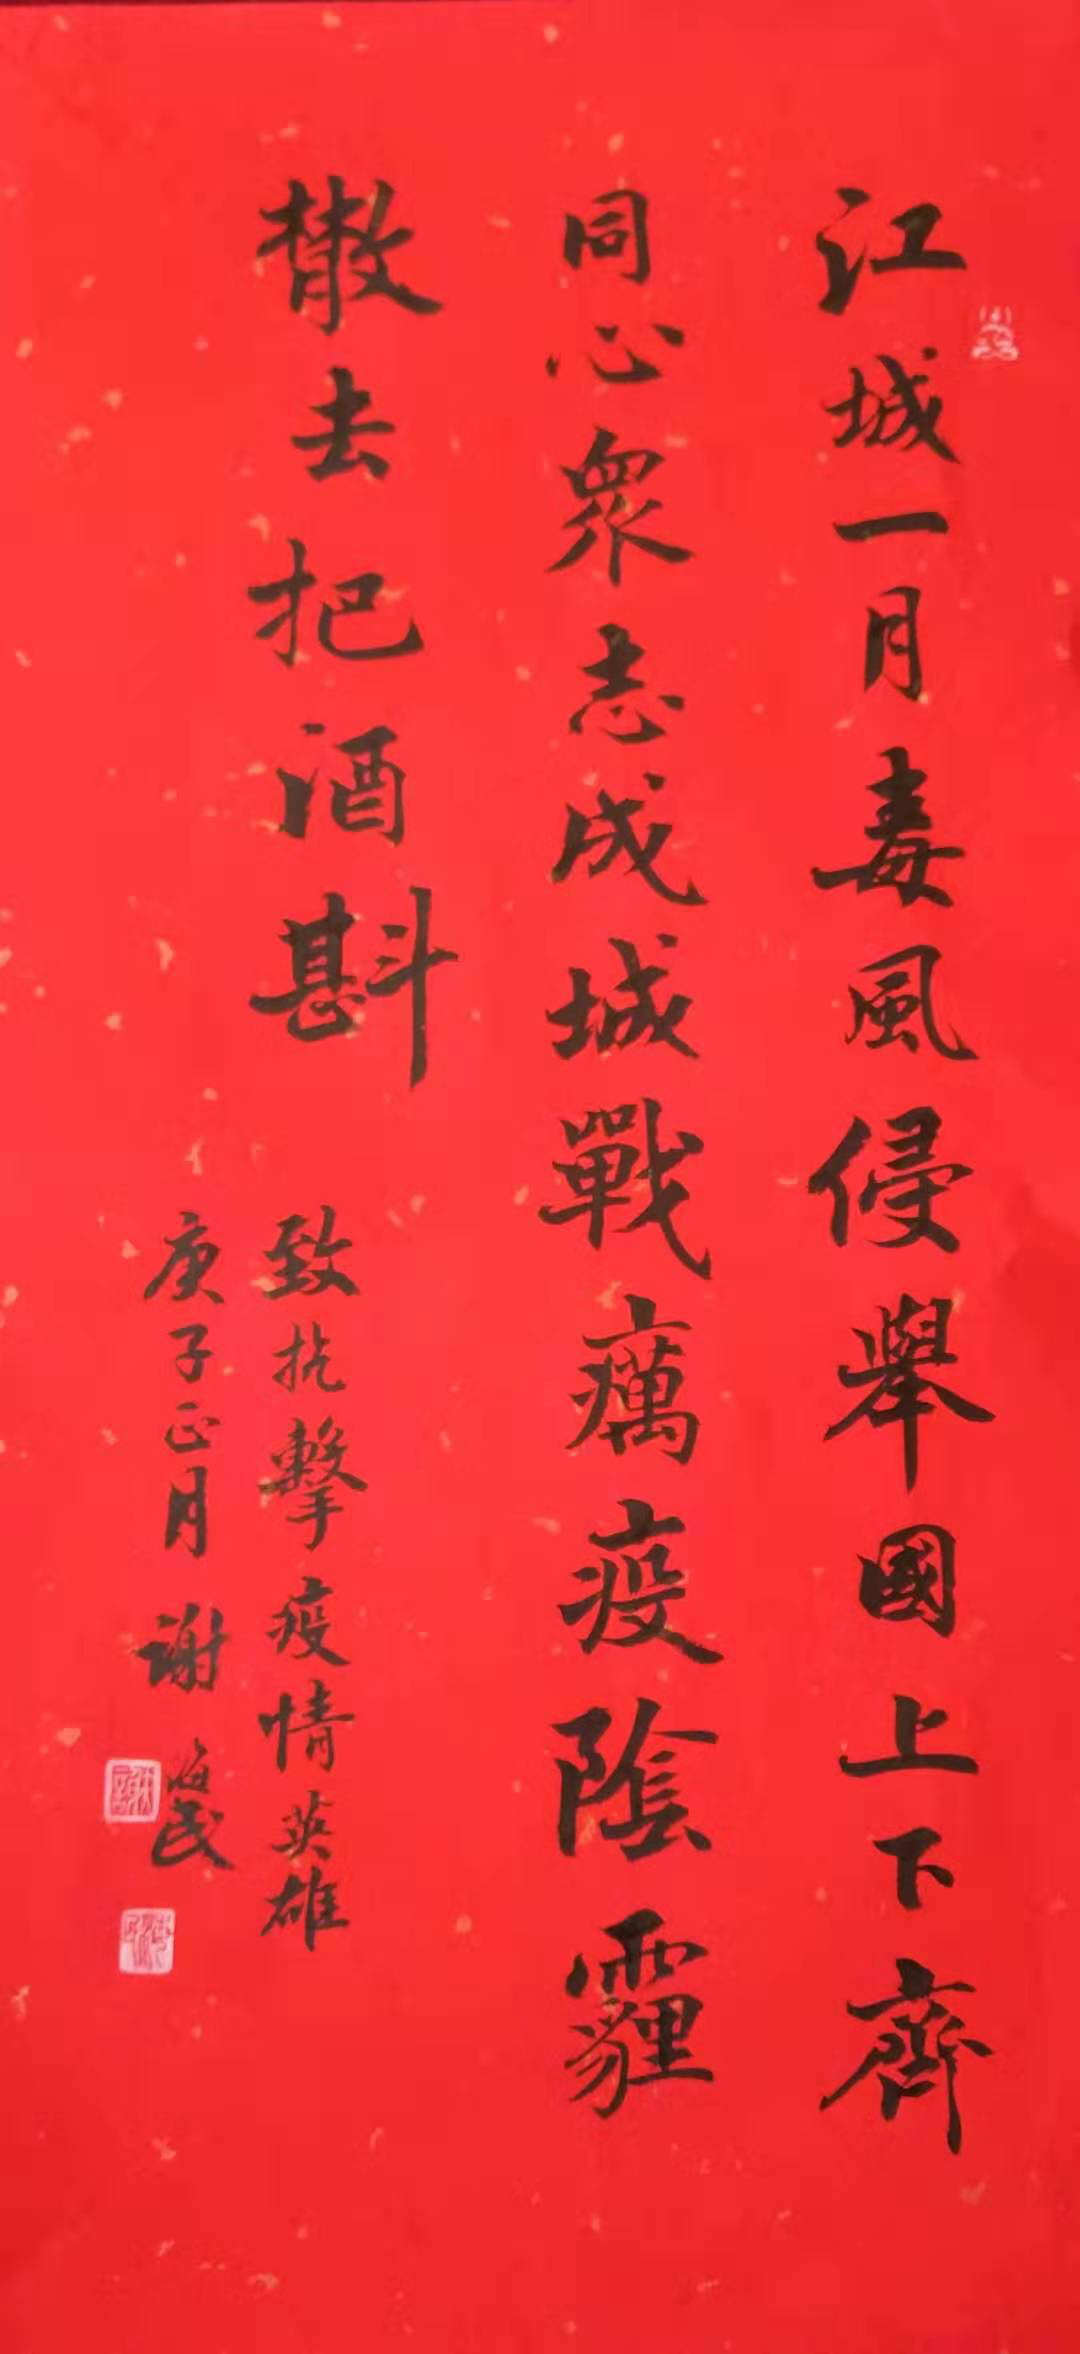 江城一月毒風侵舉國上下齊
同心眾志成城戰癘疫陰霾
散去把酒斟
致抗擊疫情英雄
庚子正月 谢海民